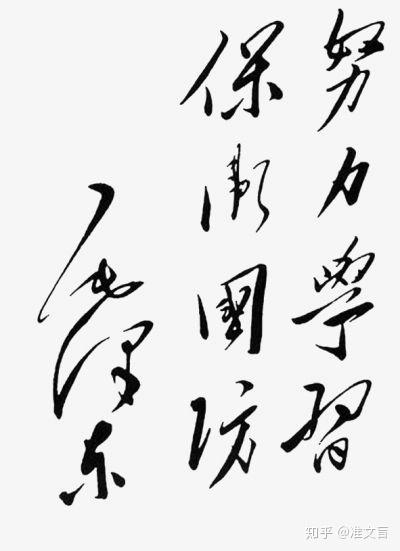 努力學習
保衛國防
毛澤东
知乎 @准文盲